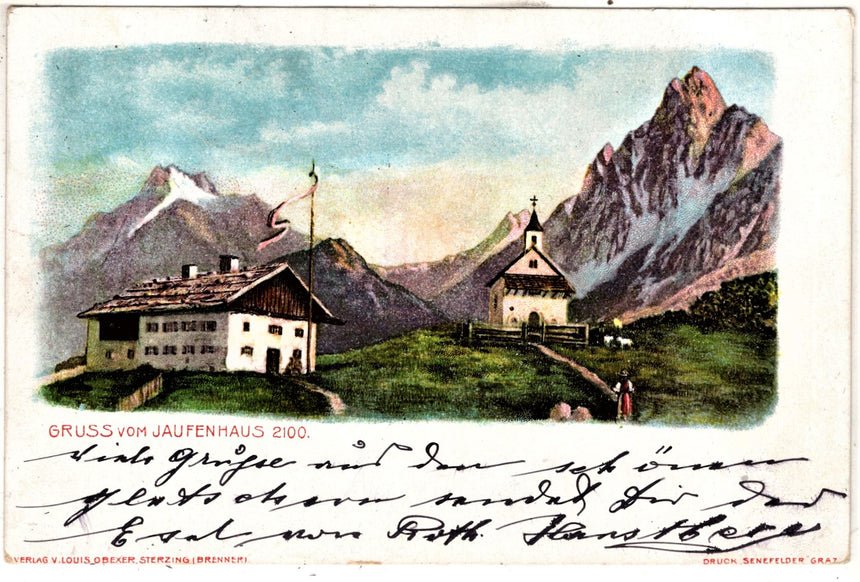 GRUSS VOM JAUFENHAUS 2100.
Viele Grüße aus den schönen
Gletschern sendet Dir der
Esel von Roth.
VERLAG V. LOUIS OBEXER, STERZING (BRENNER).
DRUCK „SENEFELDER“ GRAZ